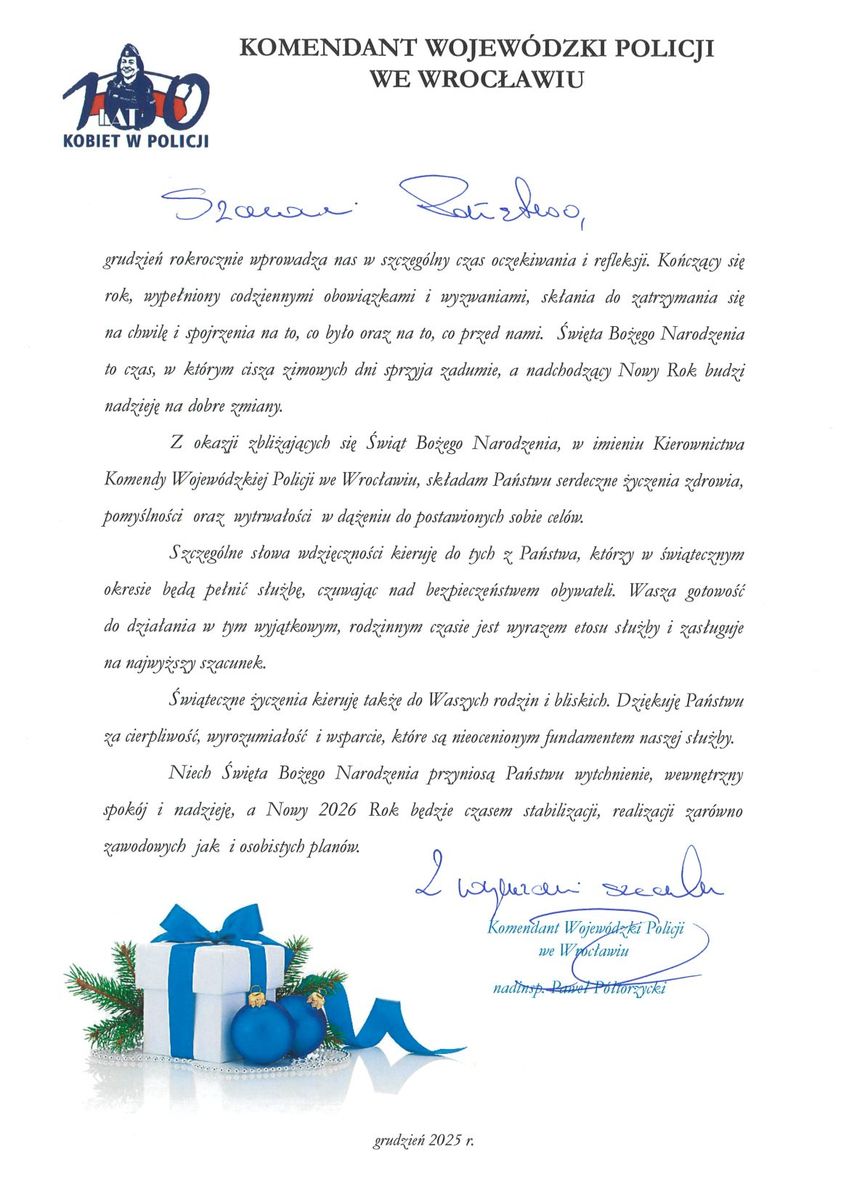 KOMENDANT WOJEWÓDZKI POLICJI
WE WROCŁAWIU
100
LAT
KOBIET W POLICJI
Szanowni Państwo,
grudzień rokrocznie wprowadza nas w szczególny czas oczekiwania i refleksji. Kończący się
rok, wypełniony codziennymi obowiązkami i wyzwaniami, skłania do zatrzymania się
na chwilę i spojrzenia na to, co było oraz na to, co przed nami. Święta Bożego Narodzenia
to czas, w którym cisza zimowych dni sprzyja zadumie, a nadchodzący Nowy Rok budzi
nadzieję na dobre zmiany.
Z okazji zbliżających się Świąt Bożego Narodzenia, w imieniu Kierownictwa
Komendy Wojewódzkiej Policji we Wrocławiu, składam Państwu serdeczne życzenia zdrowia,
pomyślności oraz wytrwałości w dążeniu do postawionych sobie celów.
Szczególne słowa wdzięczności kieruję do tych z Państwa, którzy w świątecznym
okresie będą pełnić służbę, czuwając nad bezpieczeństwem obywateli. Wasza gotowość
do działania w tym wyjątkowym, rodzinnym czasie jest wyrazem etosu służby i zasługuje
na najwyższy szacunek.
Świąteczne życzenia kieruję także do Waszych rodzin i bliskich. Dziękuję Państwu
za cierpliwość, wyrozumiałość i wsparcie, które są nieocenionym fundamentem naszej służby.
Niech Święta Bożego Narodzenia przyniosą Państwu wytchnienie, wewnętrzny
spokój i nadzieję, a Nowy 2026 Rok będzie czasem stabilizacji, realizacji zarówno
zawodowych jak i osobistych planów.
Z wyrazami szacunku
Komendant Wojewódzki Policji
we Wrocławiu
nadinsp. Paweł Półtorzycki
grudzień 2025 r.